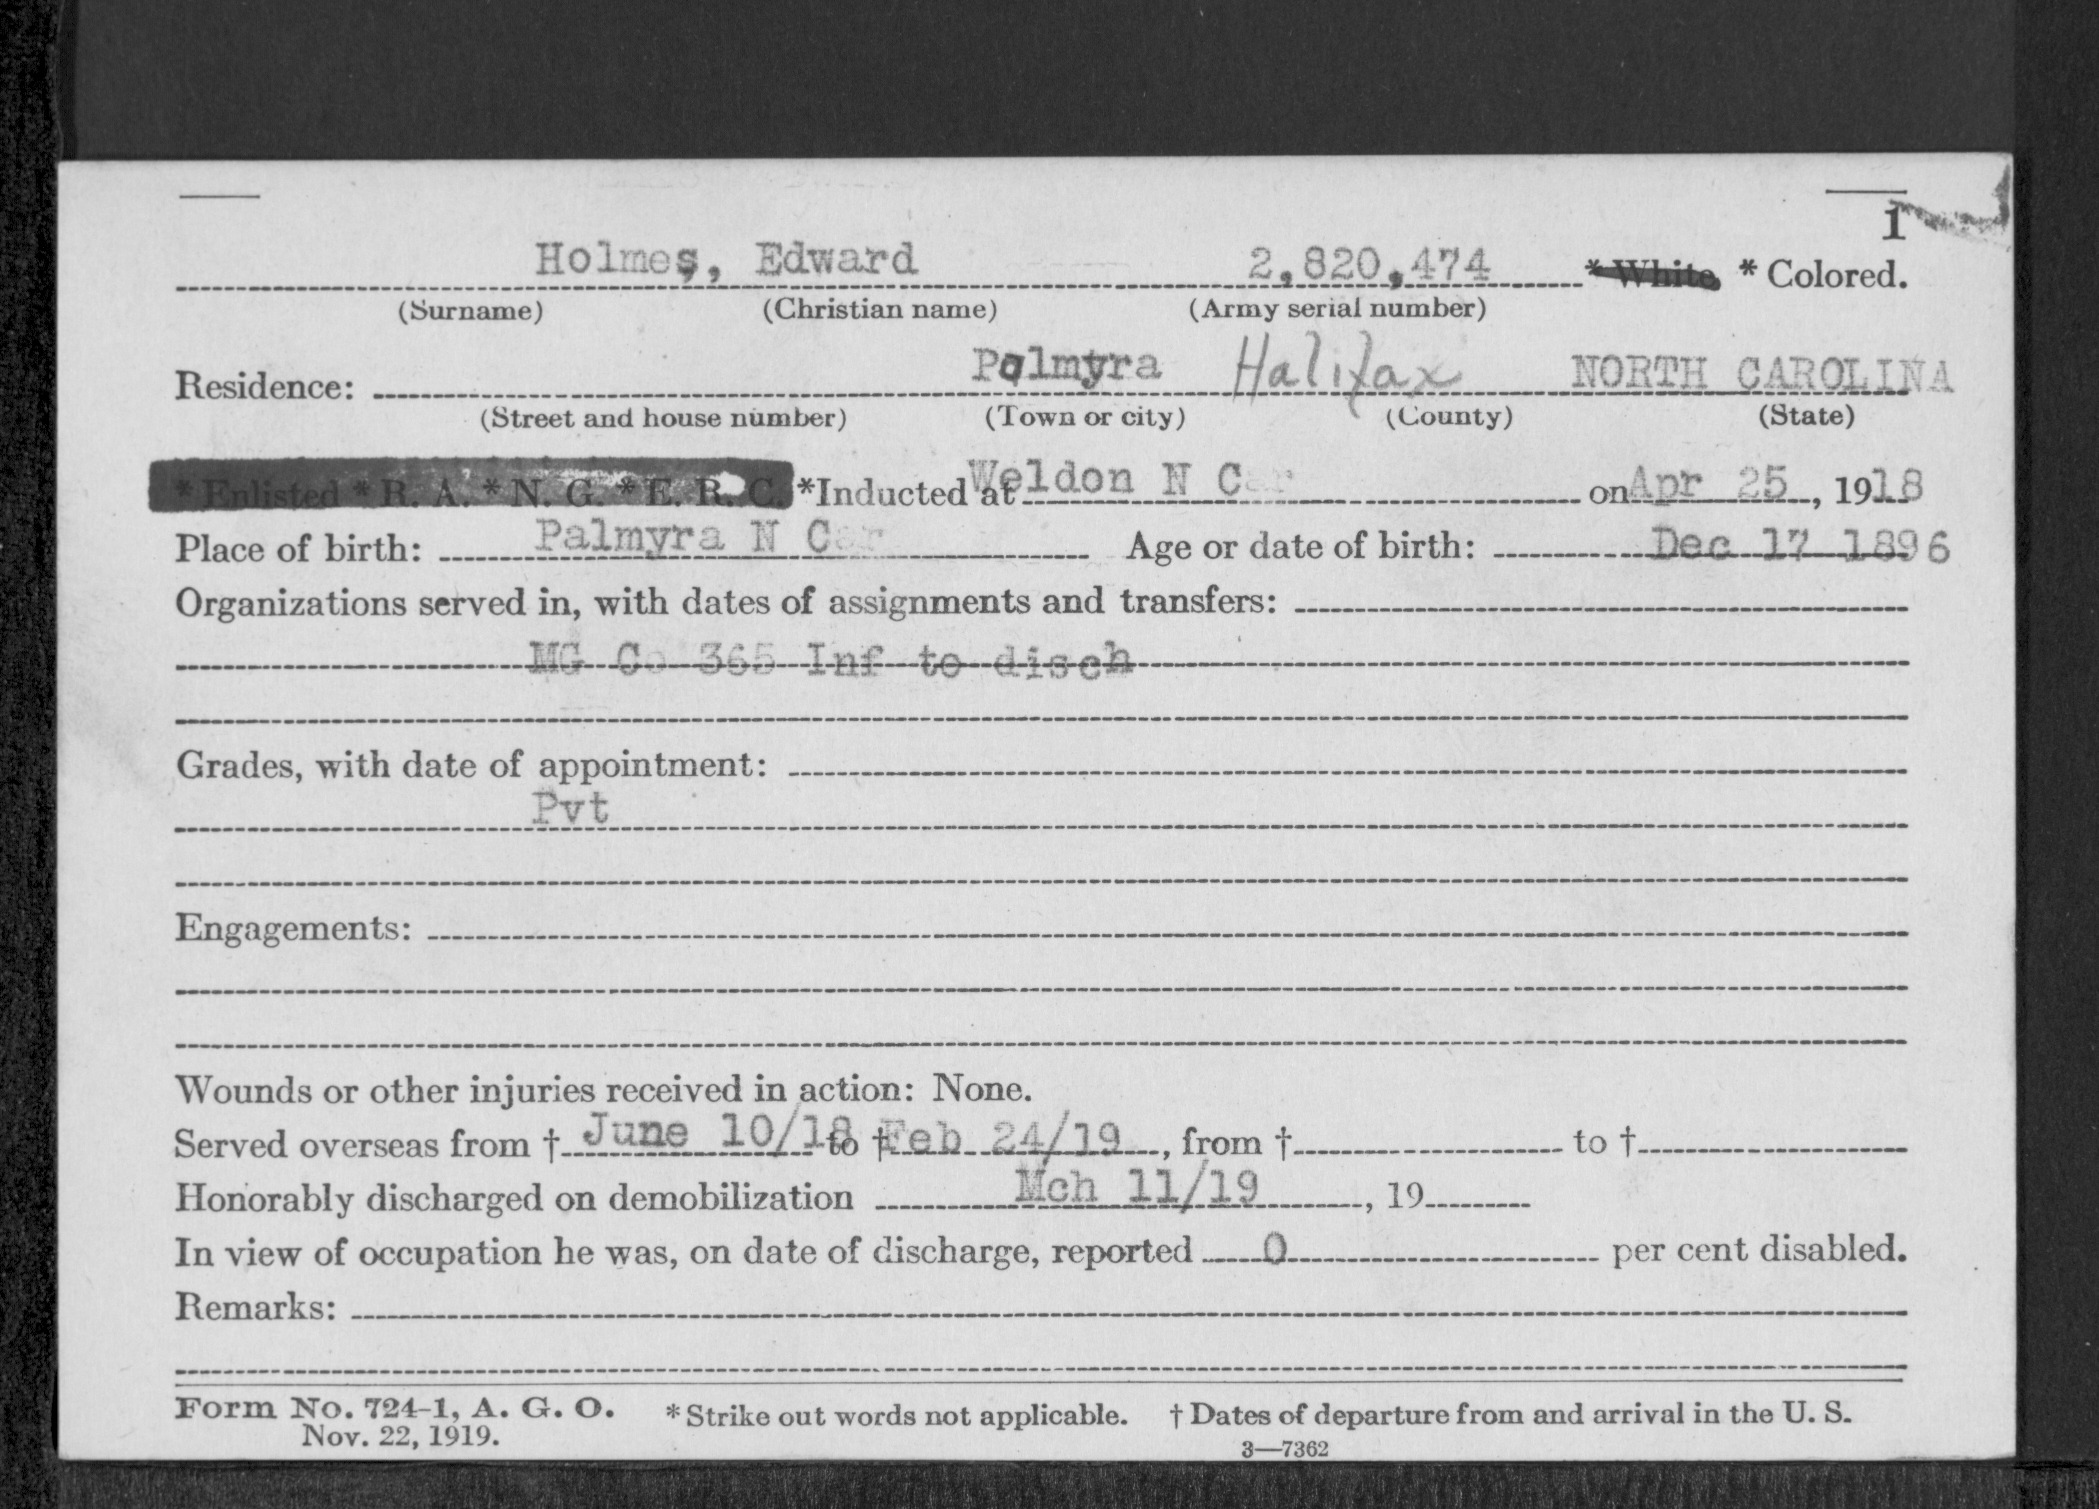 1
Holmes, Edward 2,820,474 * White * Colored.
(Surname) (Christian name) (Army serial number)
Residence: Palmyra Halifax NORTH CAROLINA
(Street and house number) (Town or city) (County) (State)
* Enlisted * R. A. * N. G. * E. R. C. *Inducted at Weldon N Car on Apr 25, 1918
Place of birth: Palmyra N Car Age or date of birth: Dec 17 1896
Organizations served in, with dates of assignments and transfers:
MG Co 365 Inf to disch
Grades, with date of appointment:
Pvt
Engagements:
Wounds or other injuries received in action: None.
Served overseas from † June 10/18 to † Feb 24/19, from † to †
Honorably discharged on demobilization Mch 11/19, 19
In view of occupation he was, on date of discharge, reported 0 per cent disabled.
Remarks:
Form No. 724-1, A. G. O. * Strike out words not applicable. † Dates of departure from and arrival in the U. S.
Nov. 22, 1919. 3—7362